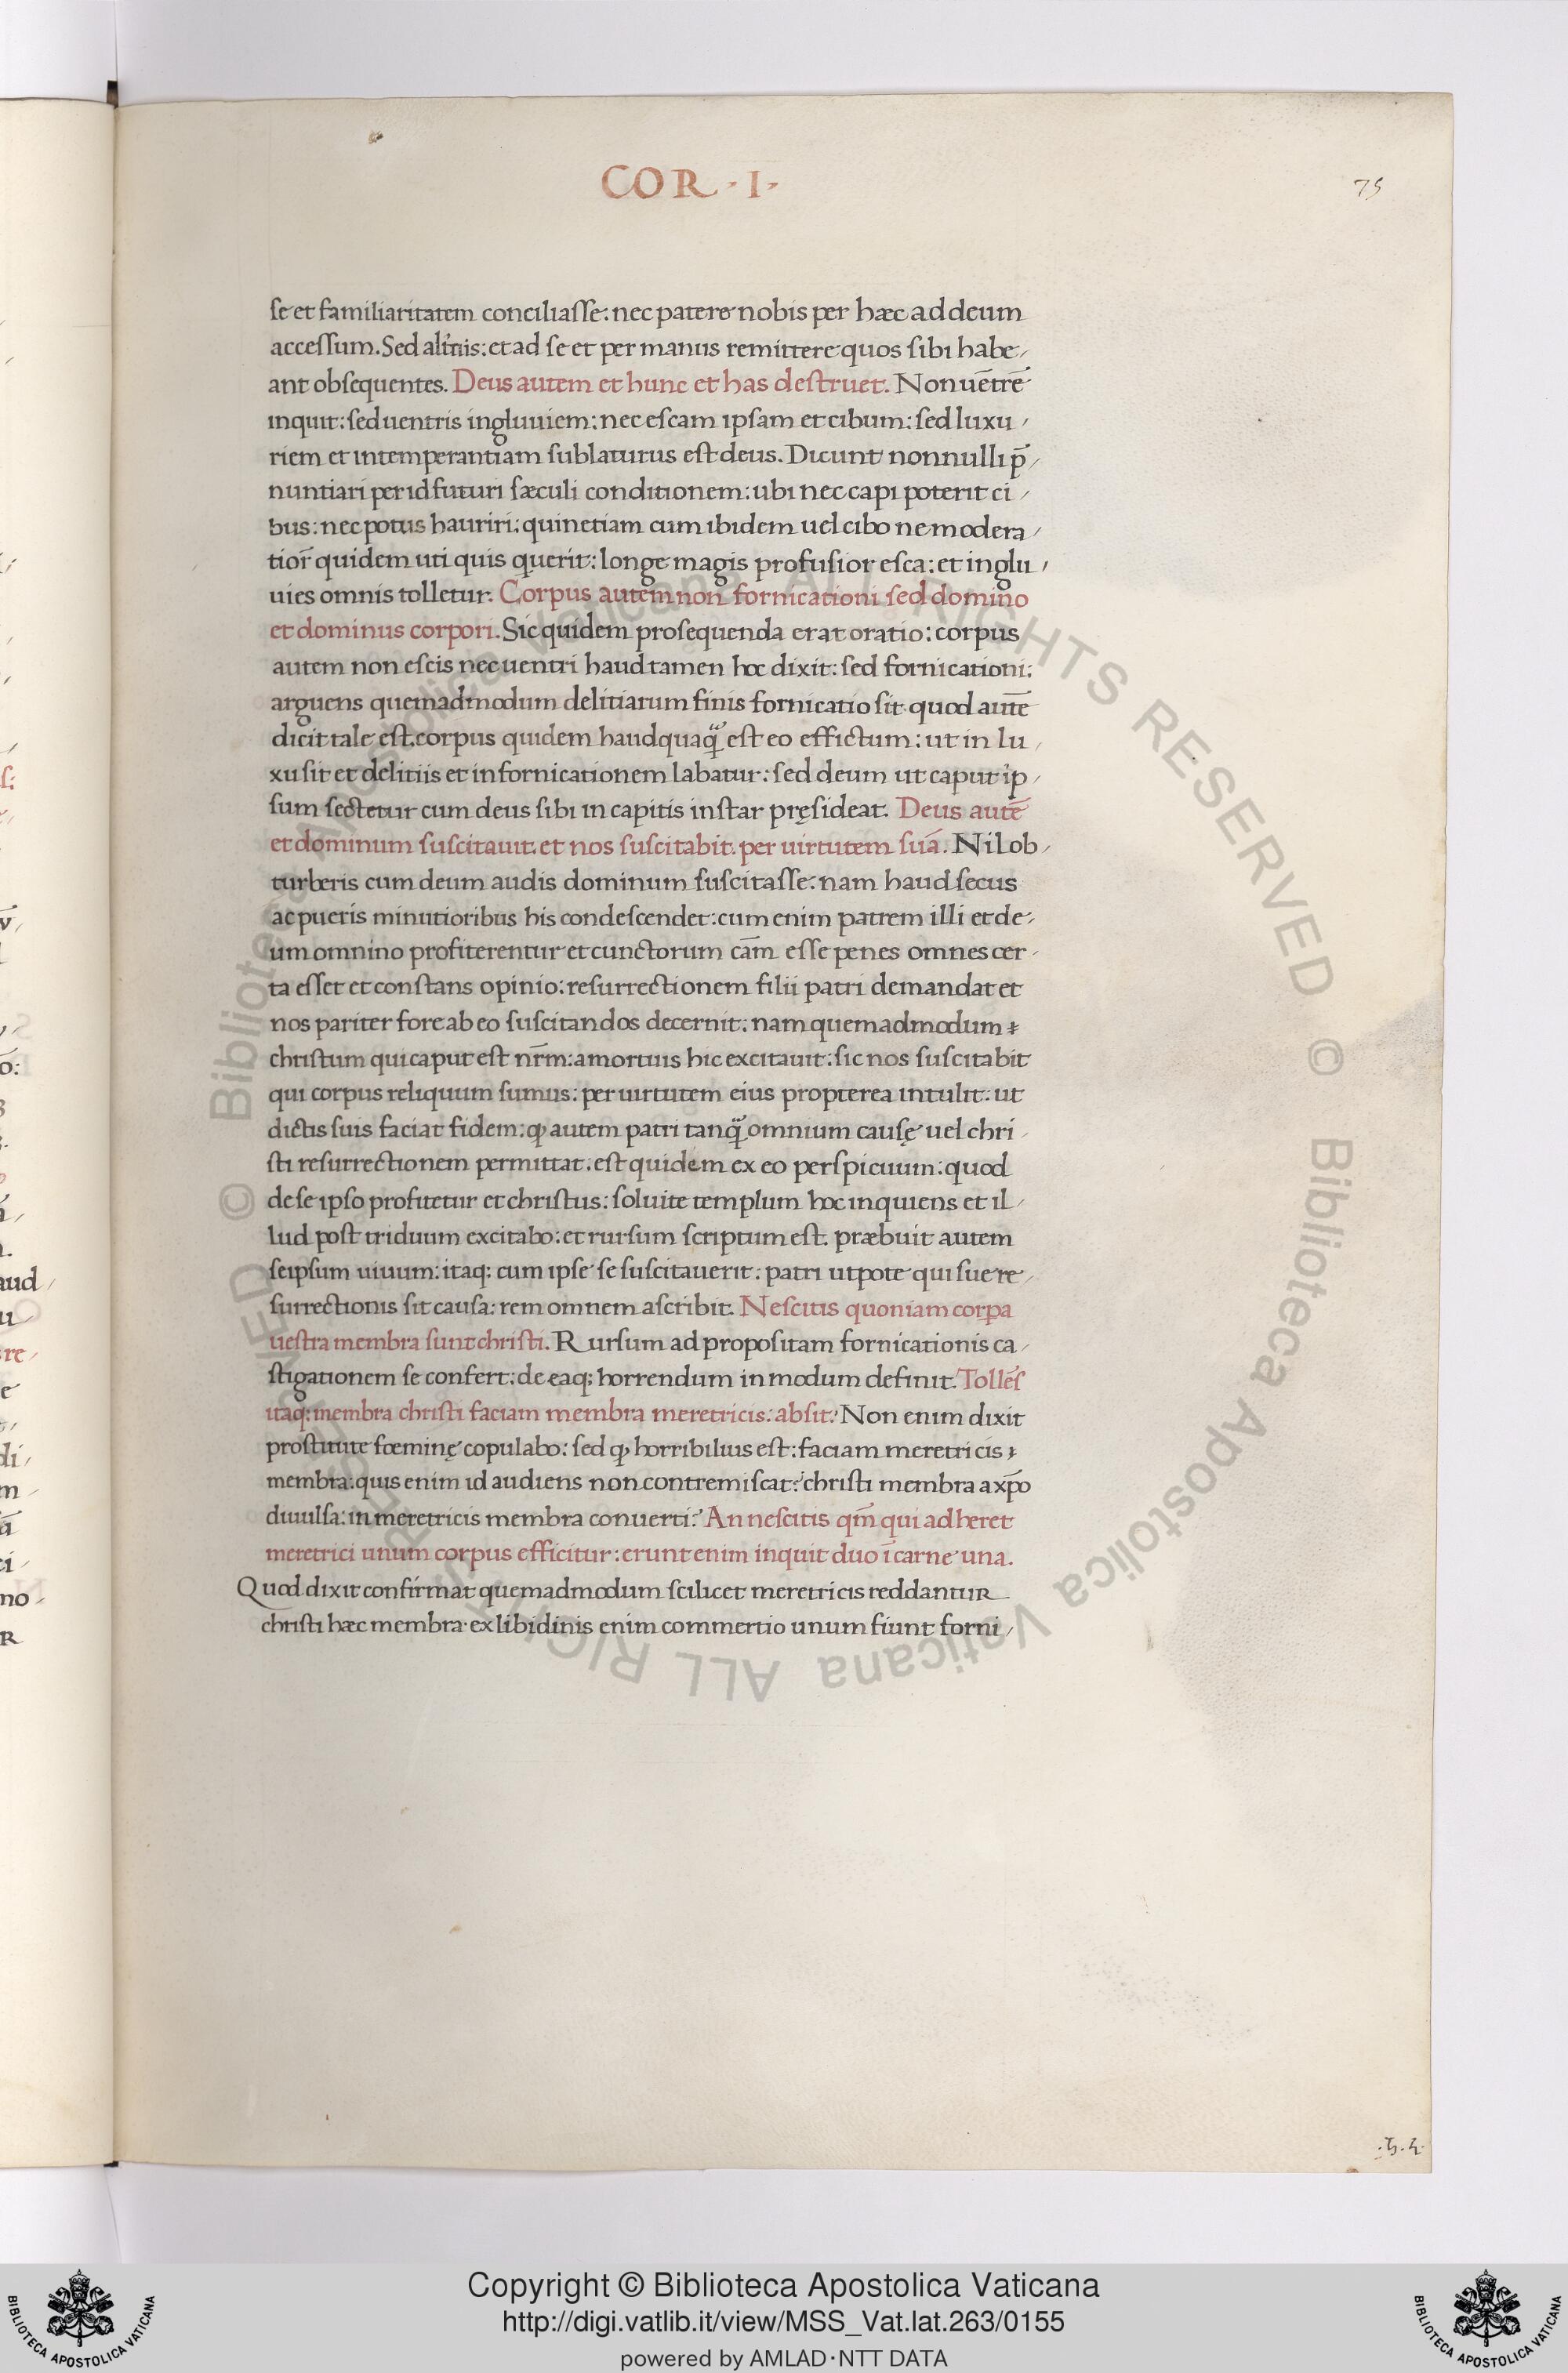 COR · I ·
75
se et familiaritatem conciliasse: nec patere nobis per hæc ad deum
accessum. Sed alt̃nis: et ad se et per manus remittere quos sibi habe-
ant obsequentes. Deus autem et hunc et has destruet. Non uētrē
inquit: sed uentris ingluuiem: nec escam ipsam et cibum: sed luxu-
riem et intemperantiam sublaturus est deus. Dicunt nonnulli p̄-
nuntiari per id futuri sæculi conditionem: ubi nec capi poterit ci-
bus: nec potus hauriri: quinetiam cum ibidem uel cibo ne modera-
tior̄ quidem uti quis querit: longe magis profusior esca: et inglu-
uies omnis tolletur. Corpus autem non fornicationi sed domino
et dominus corpori. Sic quidem prosequenda erat oratio: corpus
autem non escis nec uentri haud tamen hoc dixit: sed fornicationi:
arguens quemadmodum delitiarum finis fornicatio sit. quod autē
dicit tale est. corpus quidem haudquaq̃ est eo effictum: ut in lu-
xu sit et delitiis et in fornicationem labatur: sed deum ut caput ip-
sum sectetur cum deus sibi in capitis instar pręsideat. Deus autē
et dominum suscitauit. et nos suscitabit. per uirtutem suā. Nil ob-
turberis cum deum audis dominum suscitasse: nam haud secus
ac pueris minutioribus his condescendet: cum enim patrem illi et de-
um omnino profiterentur et cunctorum cām esse penes omnes cer-
ta esset et constans opinio: resurrectionem filii patri demandat et
nos pariter fore ab eo suscitandos decernit: nam quemadmodum
christum qui caput est nr̄m: a mortuis hic excitauit: sic nos suscitabit
qui corpus reliquum sumus: per uirtutem eius propterea intulit: ut
dictis suis faciat fidem: ꝙ autem patri tanq̃ omnium causę uel chri-
sti resurrectionem permittat. est quidem ex eo perspicuum: quod
de se ipso profitetur et christus: soluite templum hoc inquiens et il-
lud post triduum excitabo: et rursum scriptum est. præbuit autem
seipsum uiuum: itaq; cum ipse se suscitauerit: patri utpote qui sue re-
surrectionis sit causa: rem omnem ascribit. Nescitis quoniam corpa
uestra membra sunt christi. Rursum ad propositam fornicationis ca-
stigationem se confert: de eaq; horrendum in modum definit. Tollēs
itaq; membra christi faciam membra meretricis: absit. Non enim dixit
prostitute fœminę copulabo: sed ꝙ horribilius est: faciam meretricis
membra: quis enim id audiens non contremiscat? christi membra a xp̄o
diuulsa: in meretricis membra conuerti? An nescitis qm̄ qui adheret
meretrici unum corpus efficitur: erunt enim inquit duo ī carne una.
Quod dixit confirmat quemadmodum scilicet meretricis reddantur
christi hæc membra. ex libidinis enim commertio unum fiunt forni-
Copyright © Biblioteca Apostolica Vaticana
http://digi.vatlib.it/view/MSS_Vat.lat.263/0155
powered by AMLAD·NTT DATA